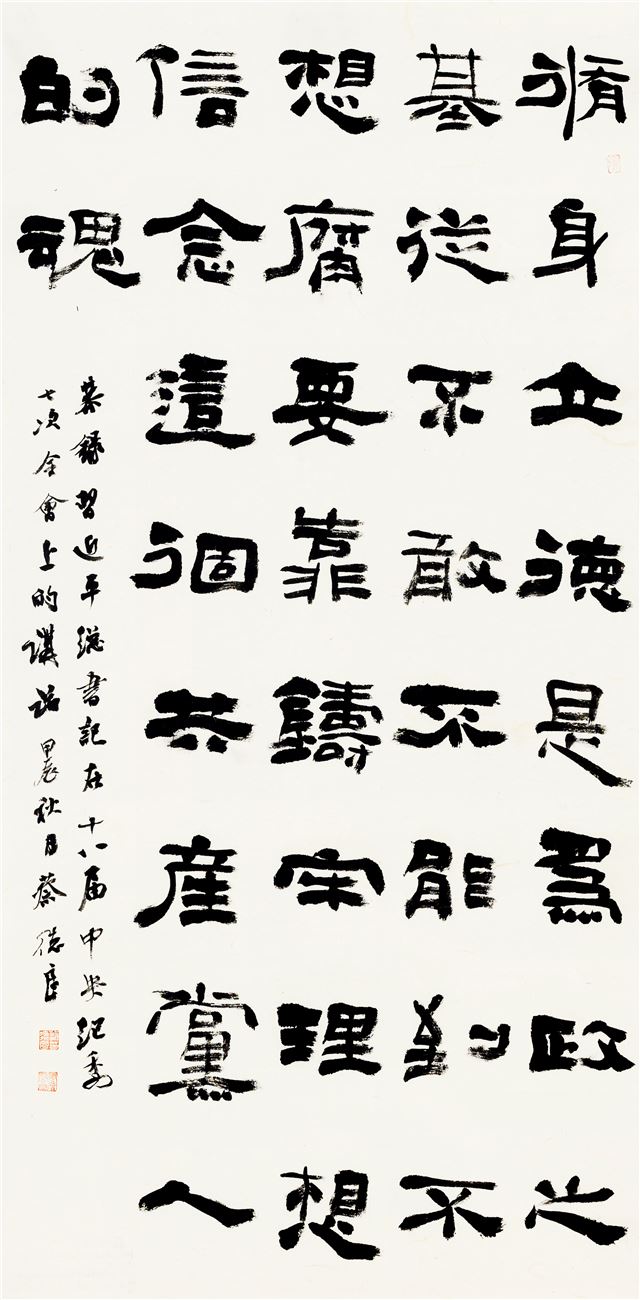 脩身立德是為政之
基從不敢不能到不
想腐要靠鑄牢理想
信念這個共產黨人
的魂
恭錄習近平總書記在十八届中央紀委
七次全會上的講話 甲辰秋月 蔡德